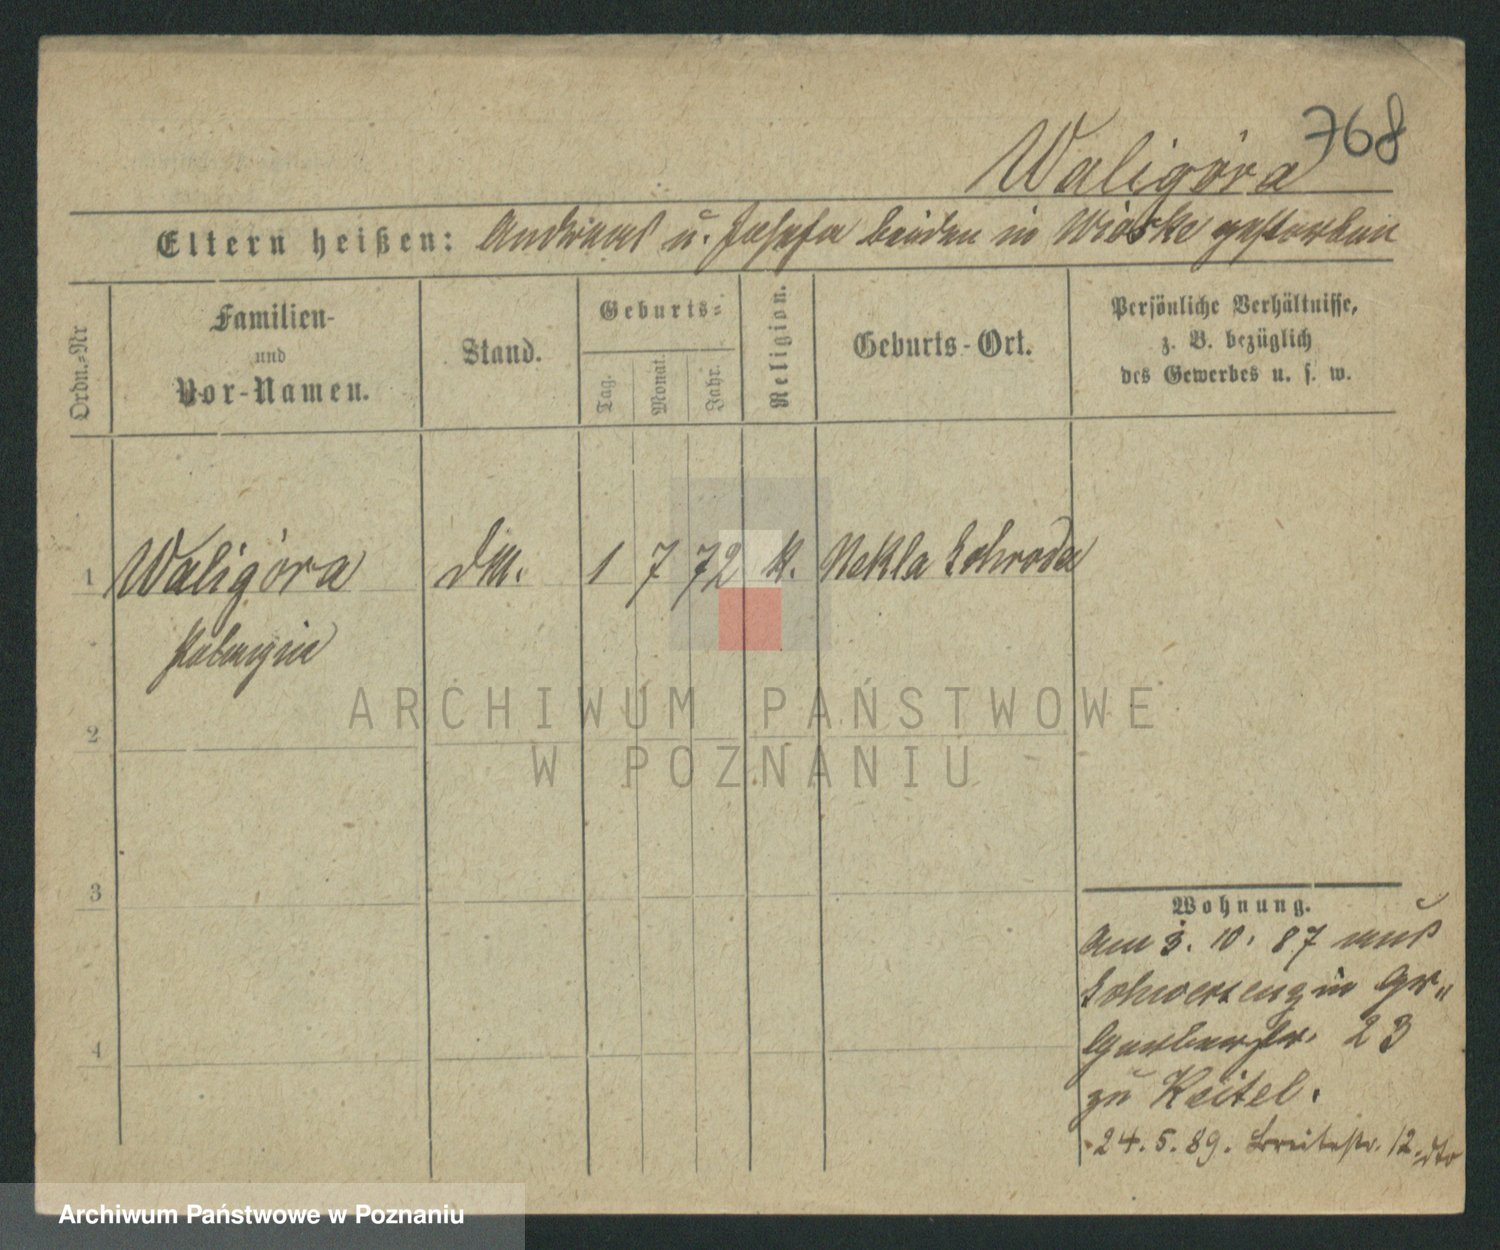 768
Waligóra
Eltern heißen: Andreas u. Josefa beiden in Wioske gestorben
Ordn.-Nr
Familien-
und
Vor-Namen.
Stand.
Geburts-
Tag.
Monat.
Jahr.
Religion.
Geburts-Ort.
Persönliche Verhältnisse,
z. B. bezüglich
des Gewerbes u. s. w.
1 Waligóra dM. 1 7 72 K. Nekla Schroda
2
3
4
ARCHIWUM PAŃSTWOWE
W POZNANIU
Wohnung.
Am 3. 10. 87 aus
Schwersenz in Gr.
Gerberstr. 23
zu Keitel.
24. 5. 89. Breitestr. 12. dto
Archiwum Państwowe w Poznaniu